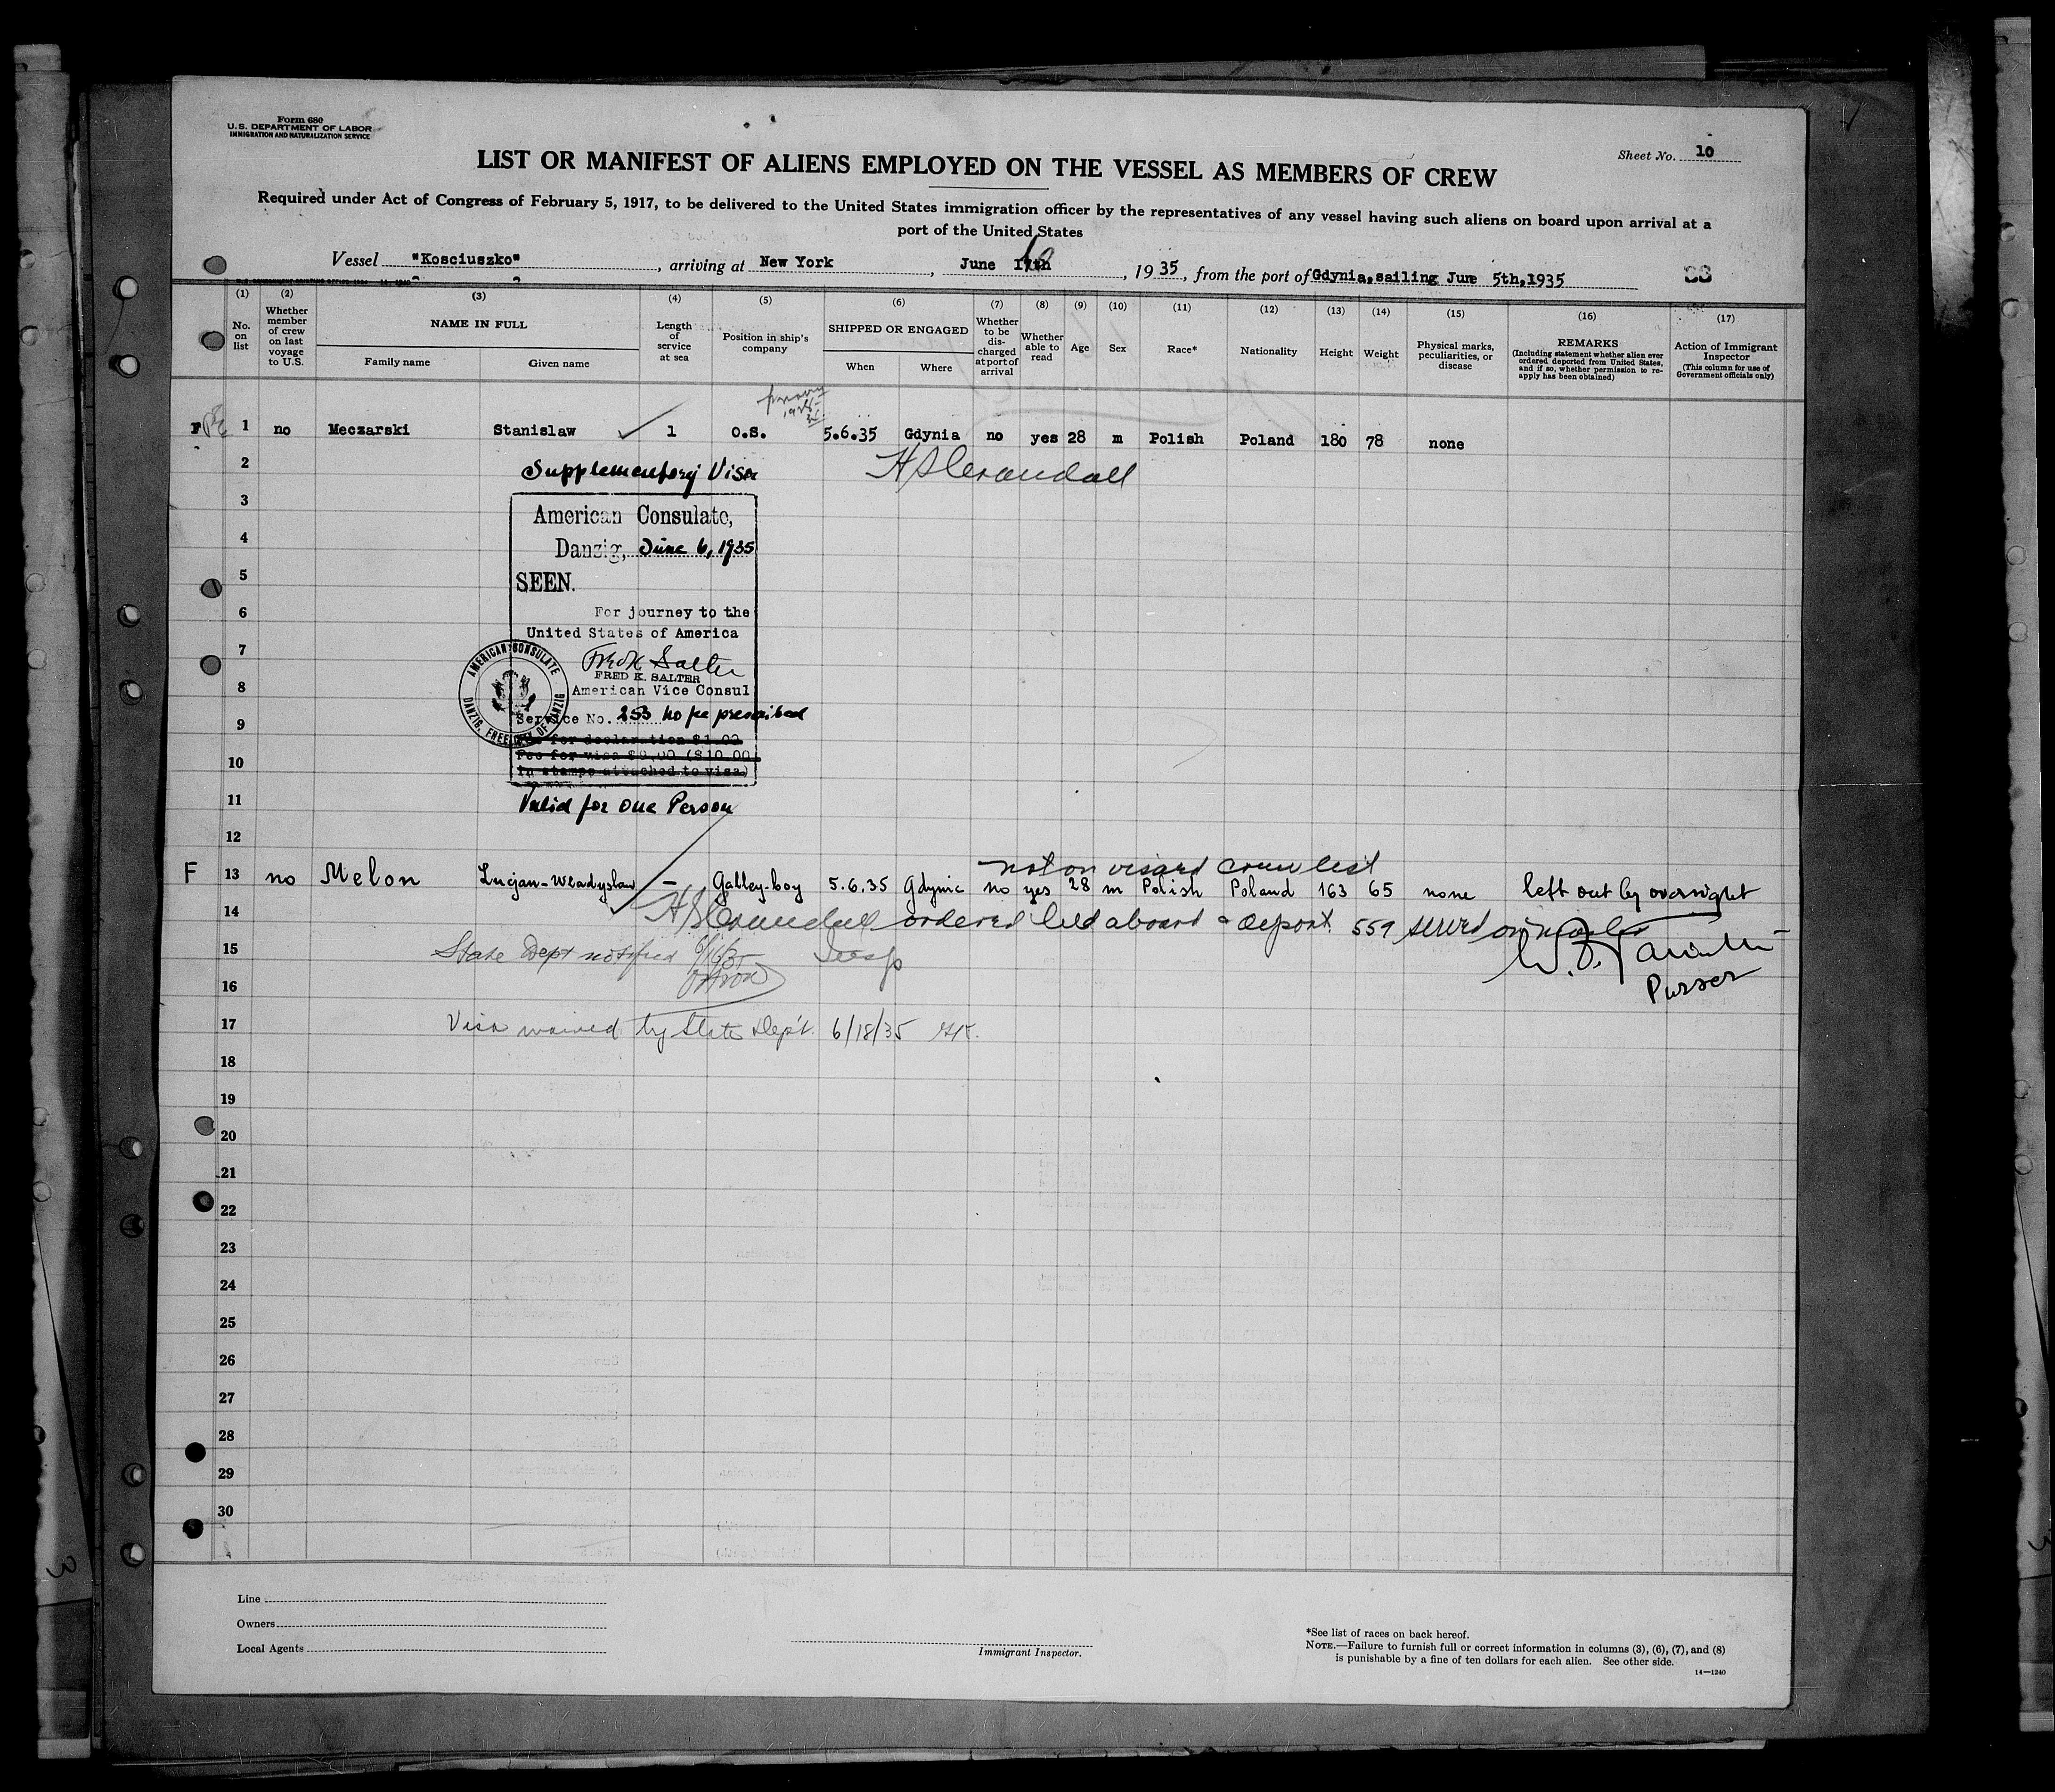 Form 680
U.S. DEPARTMENT OF LABOR
IMMIGRATION AND NATURALIZATION SERVICE
Sheet No. 10
LIST OR MANIFEST OF ALIENS EMPLOYED ON THE VESSEL AS MEMBERS OF CREW
Required under Act of Congress of February 5, 1917, to be delivered to the United States immigration officer by the representatives of any vessel having such aliens on board upon arrival at a
port of the United States
Vessel "Kosciuszko", arriving at New York, June 17th, 1935, from the port of Gdynia, sailing June 5th, 1935
(1) (2) (3) (4) (5) (6) (7) (8) (9) (10) (11) (12) (13) (14) (15) (16) (17)
No. on list
Whether member of crew on last voyage to U.S.
NAME IN FULL
Family name
Given name
Length of service at sea
Position in ship's company
SHIPPED OR ENGAGED
When
Where
Whether to be discharged at port of arrival
Whether able to read
Age
Sex
Race*
Nationality
Height
Weight
Physical marks, peculiarities, or disease
REMARKS
(Including statement whether alien ever ordered deported from United States, and if so, whether permission to reapply has been obtained)
Action of Immigrant Inspector
(This column for use of Government officials only)
F 1 no Meczarski Stanislaw 1 O.S. 5.6.35 Gdynia no yes 28 m Polish Poland 180 78 none
2 Supplementary Visa H S Crandall
3 American Consulate,
4 Danzig, June 6, 1935
5 SEEN.
6 For journey to the
United States of America
7 Fred K Salter
FRED K. SALTER
8 American Vice Consul
AMERICAN CONSULATE
DANZIG, FREE CITY OF DANZIG
9 Service No. 253 no fee prescribed
Fee for declaration $1.00
10 Fee for visa $9.00 ($10.00
in stamps attached to visa)
11 Valid for one Person
12
not on visaed crew list
F 13 no Melon Lucjan-Wladyslaw - Galley-boy 5.6.35 Gdynia no yes 28 m Polish Poland 163 65 none left out by oversight
14 H S Crandall ordered held aboard & deport. 559 served on
15 State Dept notified 6/16/35
16 Purser
17 Visa waived by State Dep't. 6/18/35
18
19
20
21
22
23
24
25
26
27
28
29
30
Line
Owners
Local Agents
Immigrant Inspector.
*See list of races on back hereof.
NOTE.—Failure to furnish full or correct information in columns (3), (6), (7), and (8)
is punishable by a fine of ten dollars for each alien. See other side.
14—1240